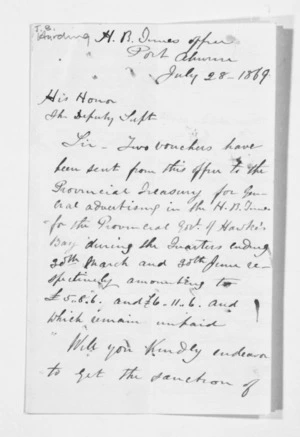 H. B. Times office
Port Ahuriri
July 28 - 1869
His Honor
The Deputy Supt
Sir - Two vouchers have
been sent from this office to the
Provincial Treasury for Gen-
eral advertising in the H. B. Times
for the Provincial Govt. of Hawke's
Bay during the Quarters ending
30th March and 30th June re-
spectively amounting to
£5.8.6. and £6.11.6. and
which remain unpaid
Will you Kindly endeavor
to get the sanction of